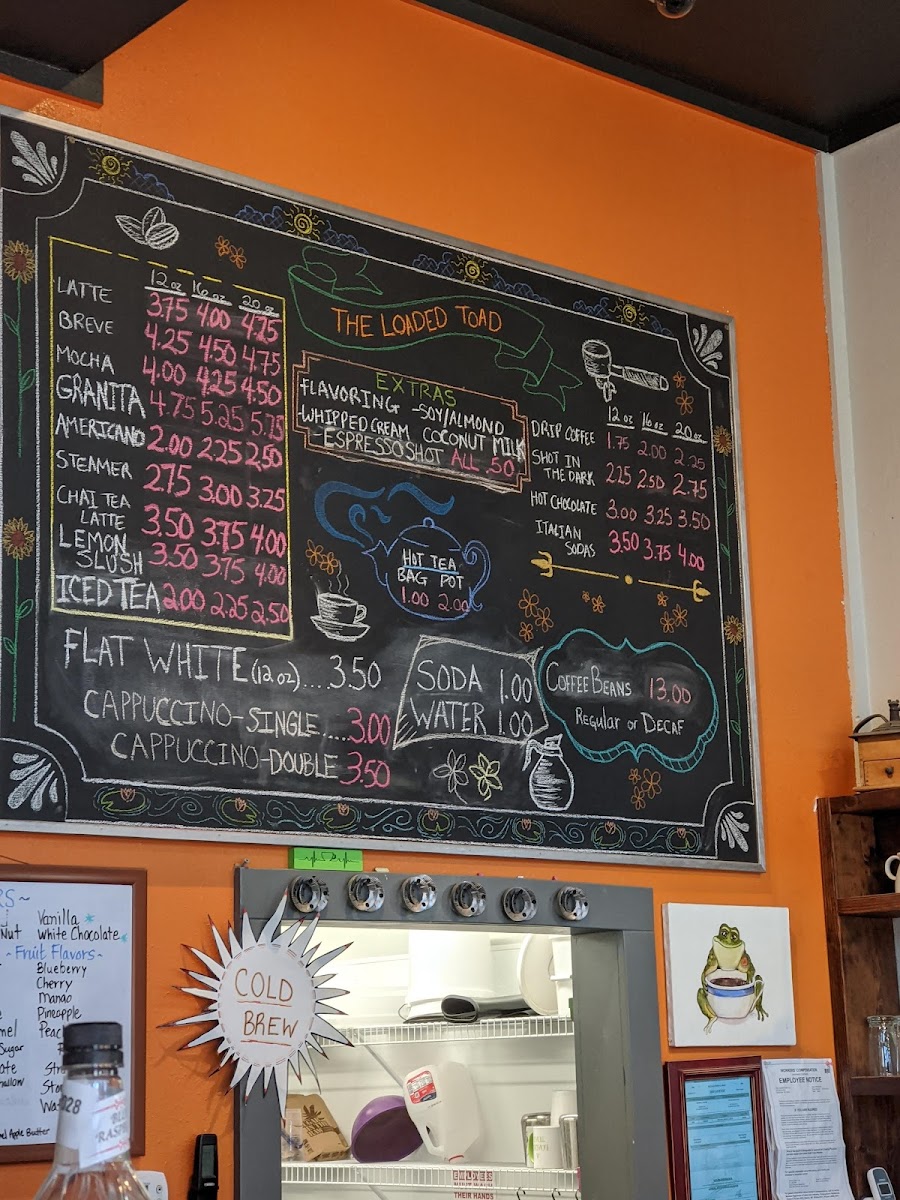 12 oz 16 oz 20 oz
LATTE 3.75 4.00 4.25
BREVE 4.25 4.50 4.75
MOCHA 4.00 4.25 4.50
GRANITA 4.75 5.25 5.75
AMERICANO 2.00 2.25 2.50
STEAMER 2.75 3.00 3.25
CHAI TEA
LATTE 3.50 3.75 4.00
LEMON
SLUSH 3.50 3.75 4.00
ICED TEA 2.00 2.25 2.50
FLAT WHITE (12 oz).... 3.50
CAPPUCCINO-SINGLE.....3.00
CAPPUCCINO-DOUBLE 3.50
THE LOADED TOAD
EXTRAS
FLAVORING -SOY/ALMOND
-WHIPPED CREAM COCONUT MILK
-ESPRESSO SHOT ALL .50
HOT TEA
BAG POT
1.00 2.00
SODA 1.00
WATER 1.00
12 oz 16 oz 20 oz
DRIP COFFEE 1.75 2.00 2.25
SHOT IN
THE DARK 2.25 2.50 2.75
HOT CHOCOLATE 3.00 3.25 3.50
ITALIAN
SODAS 3.50 3.75 4.00
COFFEE BEANS 13.00
Regular or DECAF
Vanilla
Nut White Chocolate
-Fruit Flavors-
Blueberry
Cherry
Mango
Pineapple
Sugar
Apple Butter
COLD
BREW
EMPLOYEE NOTICE
THEIR HANDS